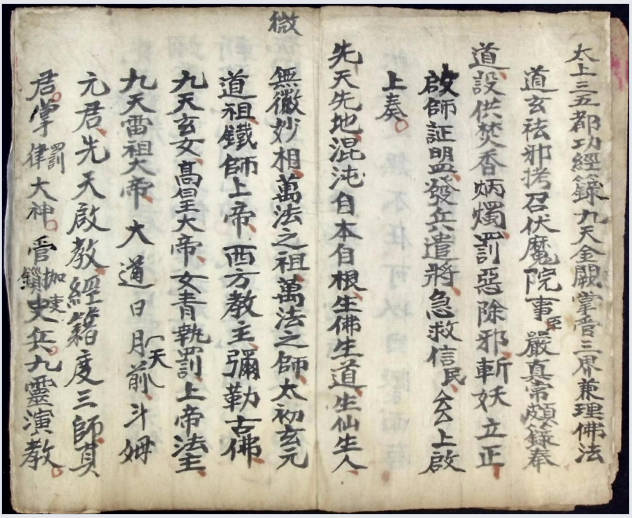 太上三五都功經籙九天金闕掌管三界兼理佛法
道玄祛邪拷召伏魔院事臣嚴真常頗籙奉
道設供焚香炳燭罰惡除邪斬妖立正
啟師証盟發兵遣將急救信民厶上啟
上奏
先天先地混沌自本自根生佛生道生仙生人
微
無微妙相萬法之祖萬法之師太初玄元
道祖鐵師上帝西方教主彌勒古佛
九天玄女高皇大帝女青執罰上帝法主
九天雷祖大帝大道日月前一天斗姆
元君先天啟教經籍度三師真
君掌罰律大神管枷鎖吏兵九靈演教